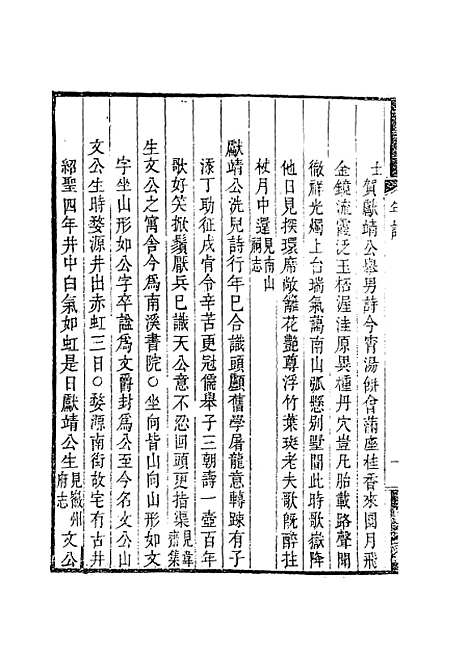 年譜
一
士賀獻靖公舉男詩今宵湯餅會蒲座桂香來圓月飛
金鏡流霞泛玉桮渥洼原異種丹穴豈凡胎載路聲聞
徹祥光燭上台瑞氣藹南山弧懸別墅間此時歌嶽降
他日見探環席敞籬花艷尊浮竹葉斑老夫歌旣醉拄
杖月中還見南山祠志
獻靖公洗兒詩行年巳合識頭顱舊學屠龍意轉踈有子
添丁助征戍肯令辛苦更冠儒舉子三朝壽一壺百年
歌好笑掀鬚厭兵巳識天公意不忍回頭更指渠見韋齋集
生文公之寓舍今爲南溪書院○坐向皆山向山形如文
字坐山形如公字卒諡爲文爵封爲公至今名文公山
文公生時婺源井出赤虹三日○婺源南街故宅有古井
紹聖四年井中白氣如虹是日獻靖公生見徽州府志文公